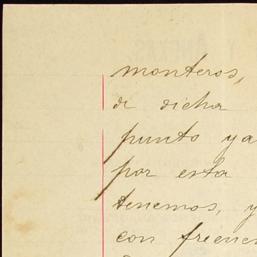 monteros,
de dicha
punto ya
por esta
tenemos, y
con frecuen